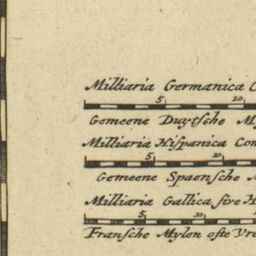 Milliaria Germanica C
5 10
Gemeene Duytsche My
Milliaria Hispanica Com
5 10
Gemeene Spaensche
Milliaria Gallica sive H
5 10
Fransche Mylen ofte Vre